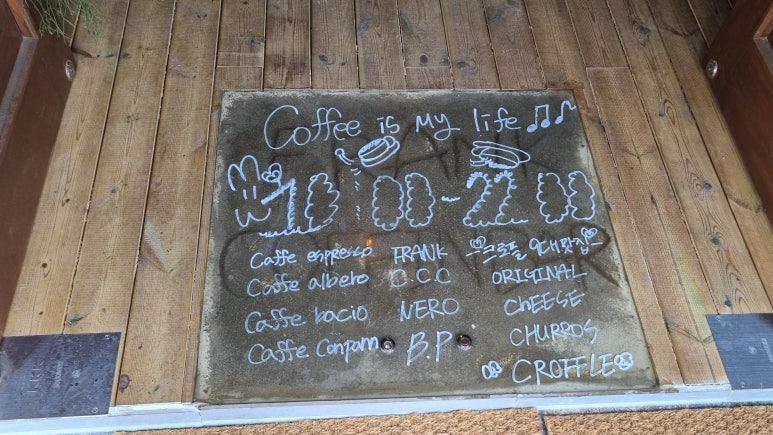 Coffee is My life
10:00-22:00
Caffe espresso FRANK
Caffe albero C.C.C
Caffe bacio NERO
Caffe Conpam B.P
크로플 9대맛집
ORIGINAL
CHEESE
CHURROS
CROFFLE